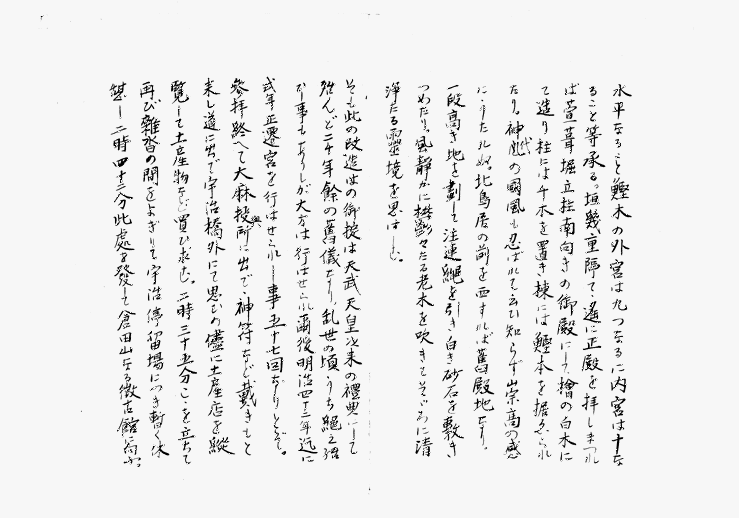 水平なること鰹木の外宮は九つなるに内宮は十な
ること等承る。垣幾重隔て遙に正殿を拝しまつれ
ば萱葺堀立柱南向きの御殿にして檜の白木に
て造り柱には千木を置き棟には鰹木を据ゑられ
たり。神代の風も忍ばれて云ひ知らず崇高の感
にうたれぬ。北鳥居の前を西すれば舊殿地なり。
一段高き地を劃して注連縄を引き白き砂石を敷き
つめたり。風静かに鬱々たる老木を吹きてそゞろに清
浄たる靈境を思はしむ。
そも此の改造の御掟は天武天皇以来の禮典にして
殆んど二千年餘の舊儀なり、乱世の頃うち絶え給
ひし事もありしが大方は行はせられ爾後明治四十二年迄に
式年正遷宮を行はせられし事五十七回なりとぞ。
参拝終へて大麻授與所に出で神符など戴きもと
来し道に出で宇治橋外にて思ひの儘に土産店を縦
覧して土産物など買ひ求む。二時三十五分こゝを立ちて
再び雑沓の間をよぎりて宇治停留場につき暫く休
憩し二時四十三分此處を發して倉田山なる徴古館に